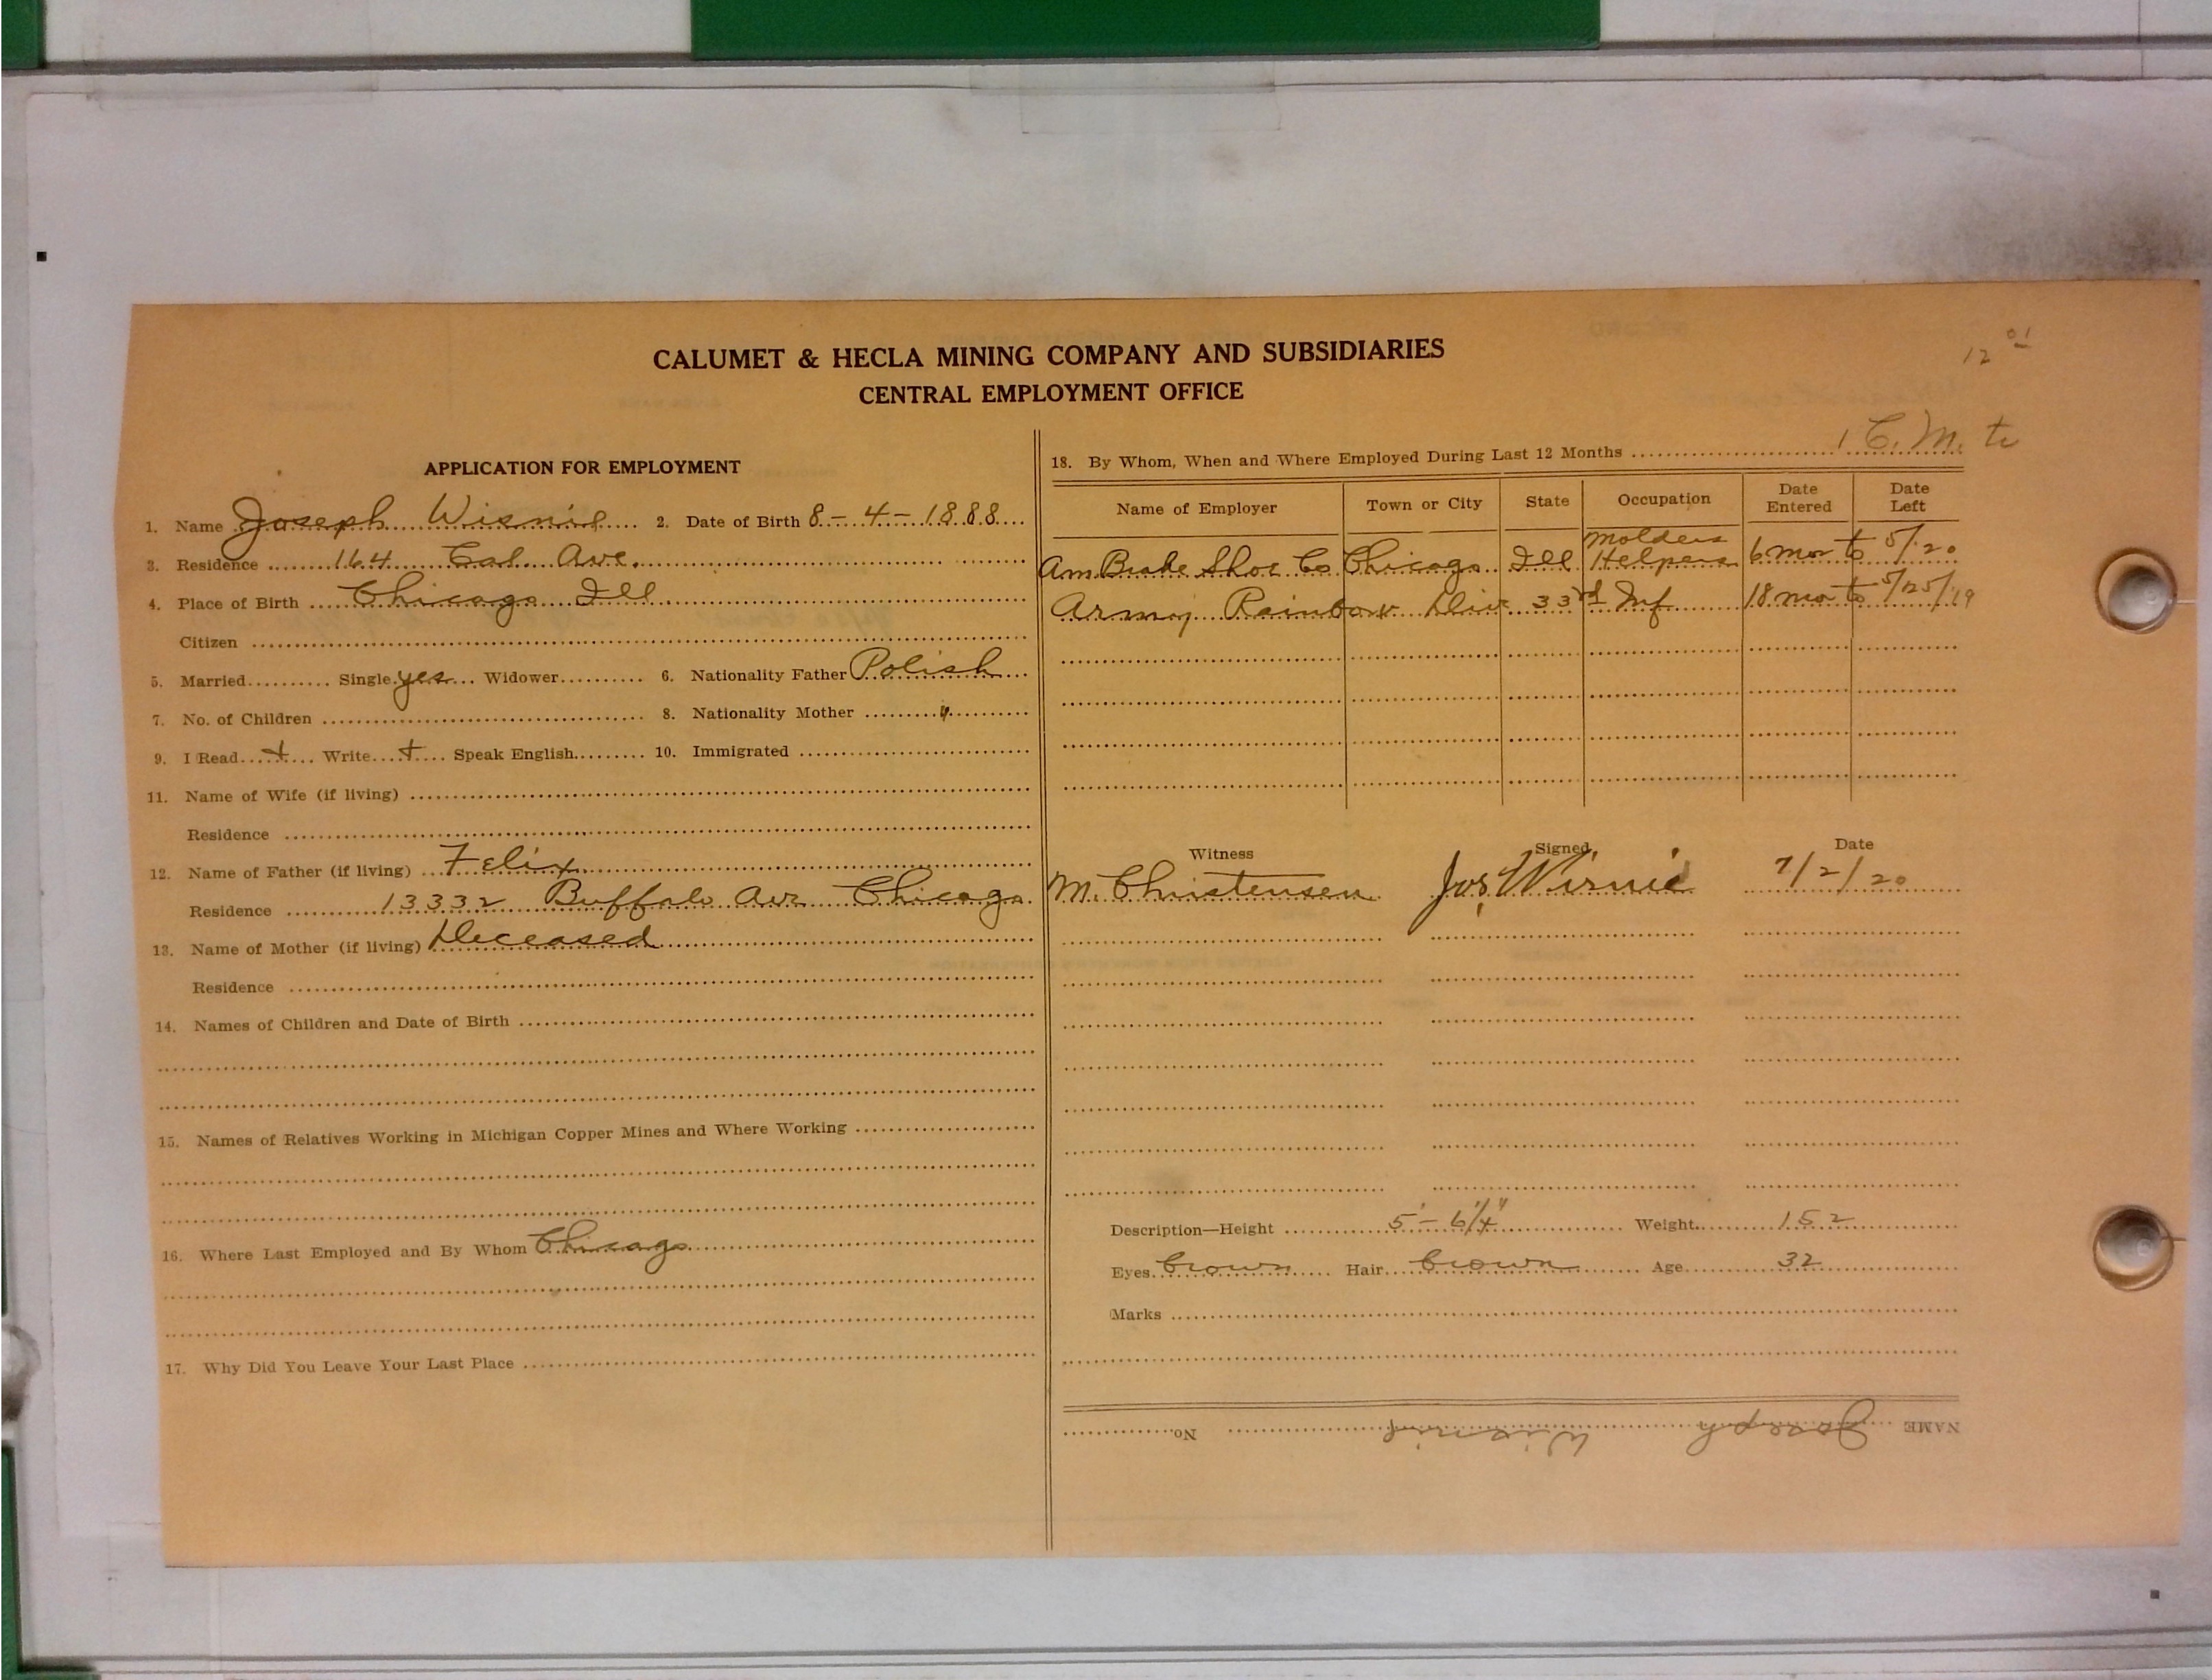 12 01
CALUMET & HECLA MINING COMPANY AND SUBSIDIARIES
CENTRAL EMPLOYMENT OFFICE
APPLICATION FOR EMPLOYMENT
1. Name Joseph Wisnie 2. Date of Birth 8-4-1888
3. Residence 164 Cal. Ave.
4. Place of Birth Chicago Ill
Citizen
5. Married Single yes Widower 6. Nationality Father Polish
7. No. of Children 8. Nationality Mother "
9. I Read + Write + Speak English 10. Immigrated
11. Name of Wife (if living)
Residence
12. Name of Father (if living) Felix
Residence 13332 Buffalo Ave Chicago
13. Name of Mother (if living) Deceased
Residence
14. Names of Children and Date of Birth
15. Names of Relatives Working in Michigan Copper Mines and Where Working
16. Where Last Employed and By Whom Chicago
17. Why Did You Leave Your Last Place
18. By Whom, When and Where Employed During Last 12 Months C. M.
Name of Employer Town or City State Occupation Date Entered Date Left
Am Brake Shoe Co Chicago Ill Molders Helpers 6 mos to 5/20
Army Rainbow Div 33rd Inf 18 mos to 5/25/19
Witness Signed Date
M. Christensen Jos Wisnie 7/2/20
Description—Height 5'-6 1/4" Weight 152
Eyes brown Hair brown Age 32
Marks
NAME Joseph Wisnie No.